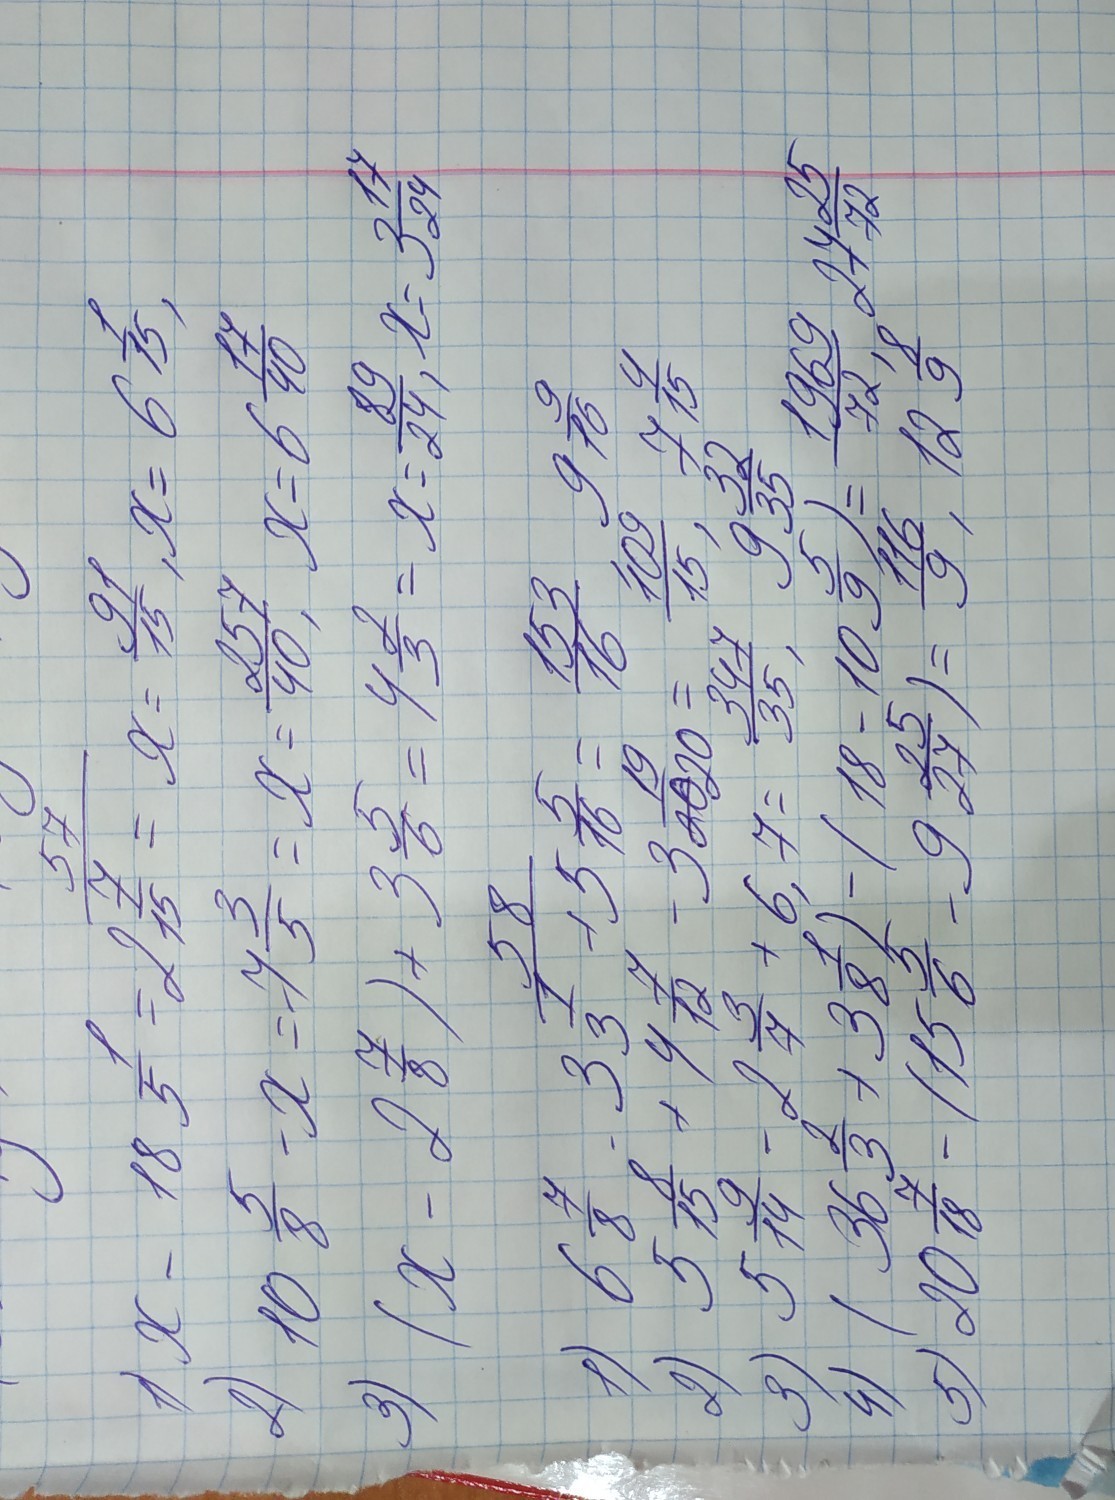 57
1) x - 18 1/5 = 2 7/15 = x = 91/15, x = 6 1/15,
2) 10 5/8 - x = 4 3/5 = x = 257/40, x = 6 17/40
3) (x - 2 7/8) + 3 5/6 = 4 2/3 = x = 89/24, x = 3 17/24
58
1) 6 7/8 - 3 1/3 + 5 5/16 = 153/16 9 9/16
2) 5 8/15 + 4 7/12 - 3 19/20 = 109/15, 7 4/15
3) 5 9/14 - 2 3/7 + 6,7 = 347/35, 9 32/35
4) (36 2/3 + 3 1/8) - (18 - 10 5/9) = 1969/72, 27 25/72
5) 20 7/18 - (15 5/6 - 9 25/27) = 116/9, 12 8/9